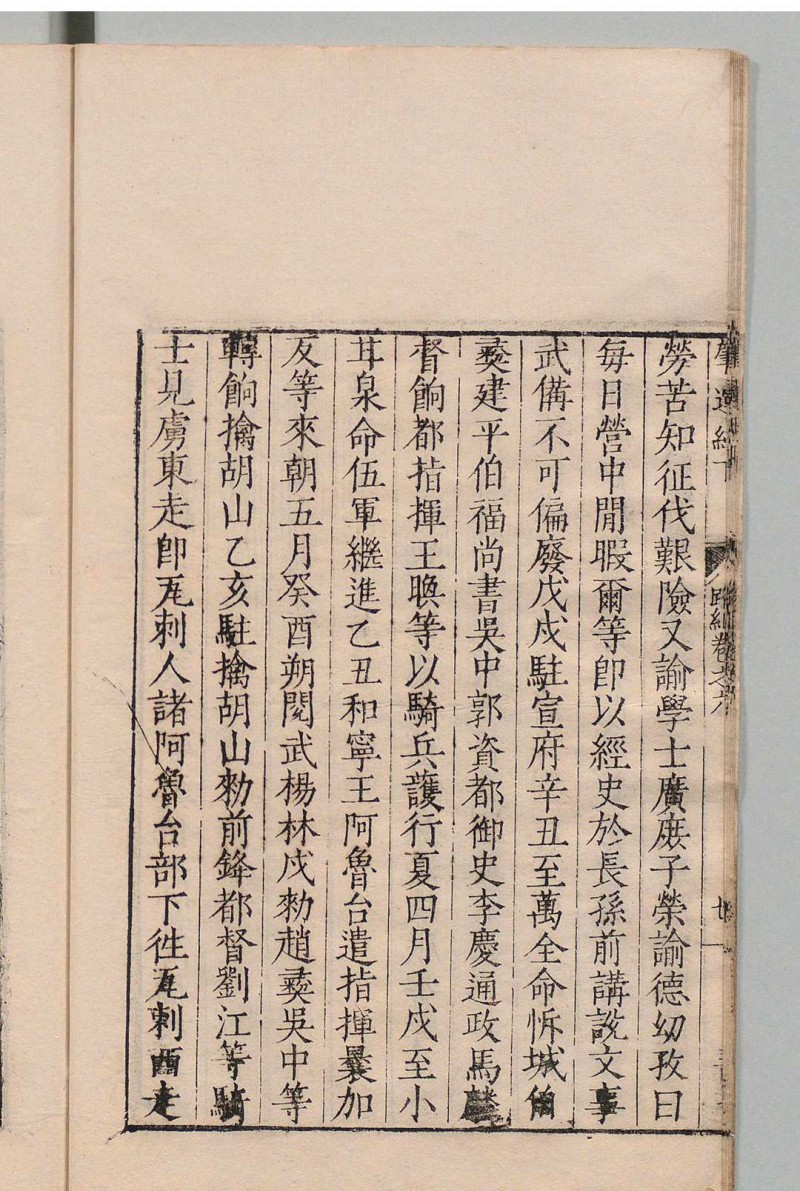 勞苦知征伐艱險又諭學士廣庶子榮諭德幼孜曰
每日營中閒暇爾等即以經史於長孫前講說文事
武備不可偏廢戊戌駐宣府辛丑至萬全命忻城伯
彝建平伯福尚書吳中郭資都御史李慶通政馬麟
督餉都指揮王喚等以騎兵護行夏四月壬戌至小
甘泉命伍軍繼進乙丑和寧王阿魯台遣指揮曩加
反等來朝五月癸酉朔閱武楊林戍勑趙彝吳中等
轉餉擒胡山乙亥駐擒胡山勑前鋒都督劉江等騎
士見虜東走即瓦剌人諸阿魯台部下徃瓦剌酉走